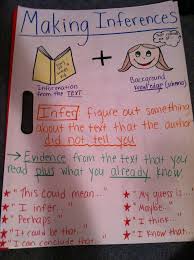 Making Inferences
+
Information from the TEXT
Background Knowledge (schema)
Infer figure out something
about the text that the author
did not tell you
→ Evidence from the text that you
read plus what you already know.
★ "This could mean..."
★ "I infer...
★ "Perhaps..."
★ "It could be that..."
★ "I can conclude that..."
★ "My guess is...
★ "Maybe..."
★ "I think..."
★ "I know that...